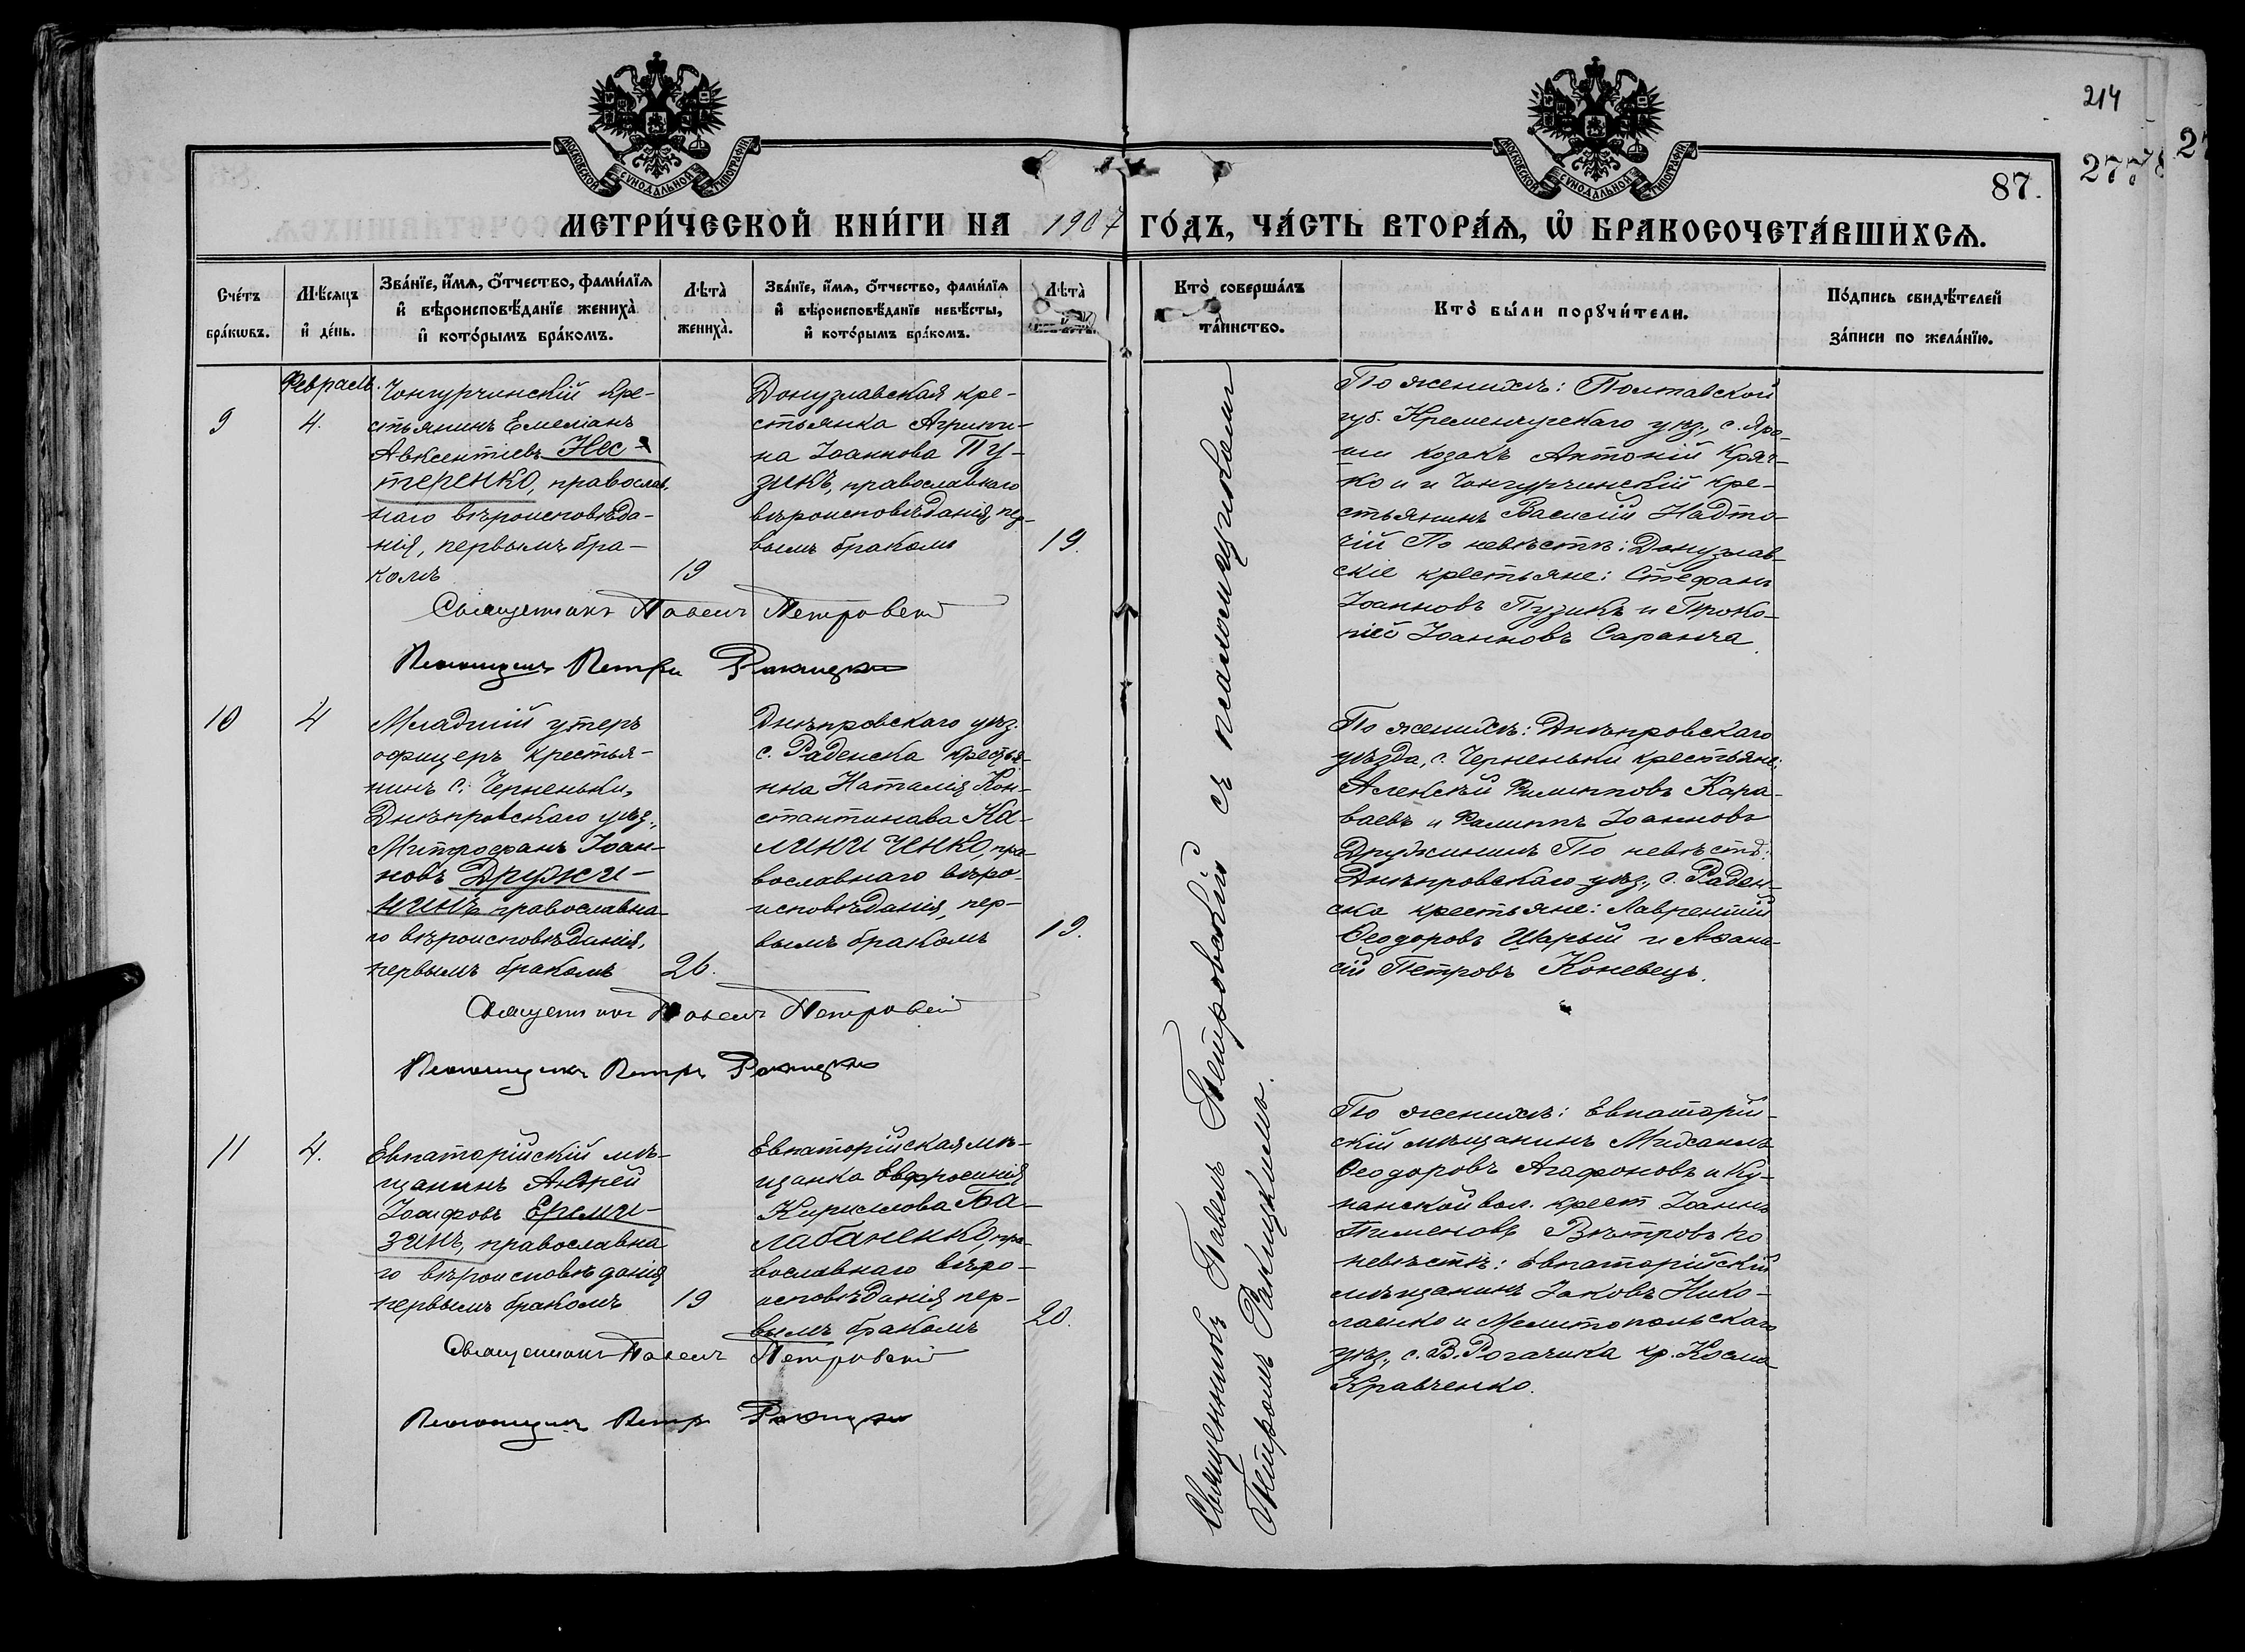 214
277
87.
МОСКОВСКОЙ СѴНОДАЛЬНОЙ ТИПОГРАФІИ
МОСКОВСКОЙ СѴНОДАЛЬНОЙ ТИПОГРАФІИ
МЕТРИ́ЧЕСКОЙ КНИ́ГИ НА 1907 ГО́ДЪ, ЧА́СТЬ ВТОРА́Ѧ, Ѽ БРАКОСОЧЕТА́ВШИХСѦ.
Сче́тъ
бра́кѡвъ.
Мѣ́сѧцъ
и҆ де́нь.
Зва́нїе, и҆́мѧ, ѻ҆́тчество, фами́лїѧ
и҆ вѣроисповѣ́данїе жениха̀
и҆ кото́рымъ бра́комъ.
Лѣта̀
жениха̀.
Зва́нїе, и҆́мѧ, ѻ҆́тчество, фами́лїѧ
и҆ вѣроисповѣ́данїе невѣ́сты,
и҆ кото́рымъ бра́комъ.
Лѣта̀
Кто̀ соверша́лъ
та́инство.
Кто̀ бы́ли порꙋчи́тели.
По́дпись свидѣ́телей
за́писи по жела́нїю.
Февраль.
9
4.
Чонгурчинскій кре-
стьянинъ Емеліанъ
Авксентіевъ Нес-
теренко, православ.
наго вѣроисповѣда-
нія, первымъ бра-
комъ
19
Донузлавская кре-
стьянка Агрипи-
на Іоаннова Пу-
зикъ, православнаго
вѣроисповѣданія, пер-
вымъ бракомъ
19.
Священникъ Павелъ Петровскій
Псаломщикъ Петръ Ракицкій
По женихѣ: Полтавской
губ. Кременчугскаго уѣз., с. Яро-
ши козакъ Антоній Кряч-
ко и и Чонгурчинскій кре-
стьянинъ Василій Надто-
чій По невѣстѣ: Донузлав-
скіе крестьяне: Стефанъ
Іоанновъ Пузикъ и Проко-
пій Іоанновъ Саранча.
10
4
Младшій унтеръ
офицеръ крестья-
нинъ с. Черненьки,
Днѣпровскаго уѣз.,
Митрофанъ Іоан-
новъ Дружи-
нинъ православна-
го вѣроисповѣданія,
первымъ бракомъ
26.
Днѣпровскаго уѣз.
с. Раденска крестья-
нка Наталія Кон-
стантинова Ка-
линиченко, пра-
вославнаго вѣро-
исповѣданія, пер-
вымъ бракомъ
19.
Священникъ Павелъ Петровскій
Псаломщикъ Петръ Ракицкій
По женихѣ: Днѣпровскаго
уѣзда, с. Черненьки крестьяне:
Алексѣй Филипповъ Кара-
ваевъ и Филиппъ Іоанновъ
Дружининъ По невѣстѣ:
Днѣпровскаго уѣз., с. Раден-
ска крестьяне: Лаврентій
Ѳеодоровъ Шарый и Аѳана-
сій Петровъ Коневецъ.
11
4.
Евпаторійскій мѣ-
щанинъ Андрей
Іосифовъ Ереми-
зинъ, православна
го вѣроисповѣданія
первымъ бракомъ
19
Евпаторійская мѣ-
щанка Евфросинія
Кириллова Ба-
лабаненко, пра-
вославнаго вѣро-
исповѣданія пер-
вымъ бракомъ
20.
Священникъ Павелъ Петровскій
Псаломщикъ Петръ Ракицкій
По женихѣ: Евпаторій-
скій мѣщанинъ Михаилъ
Ѳеодоровъ Агафоновъ и Ку-
панской вол. крест Іоаннъ
Пименовъ Вѣтровъ По
невѣстѣ: Евпаторійскій
мѣщанинъ Іаковъ Нико-
лаенко и Мелитопольскаго
уѣз., с. В. Рогачика кр. Косма
Кравченко.
Священникъ Павелъ Петровскій съ псаломщикомъ
Петромъ Ракицкимъ.